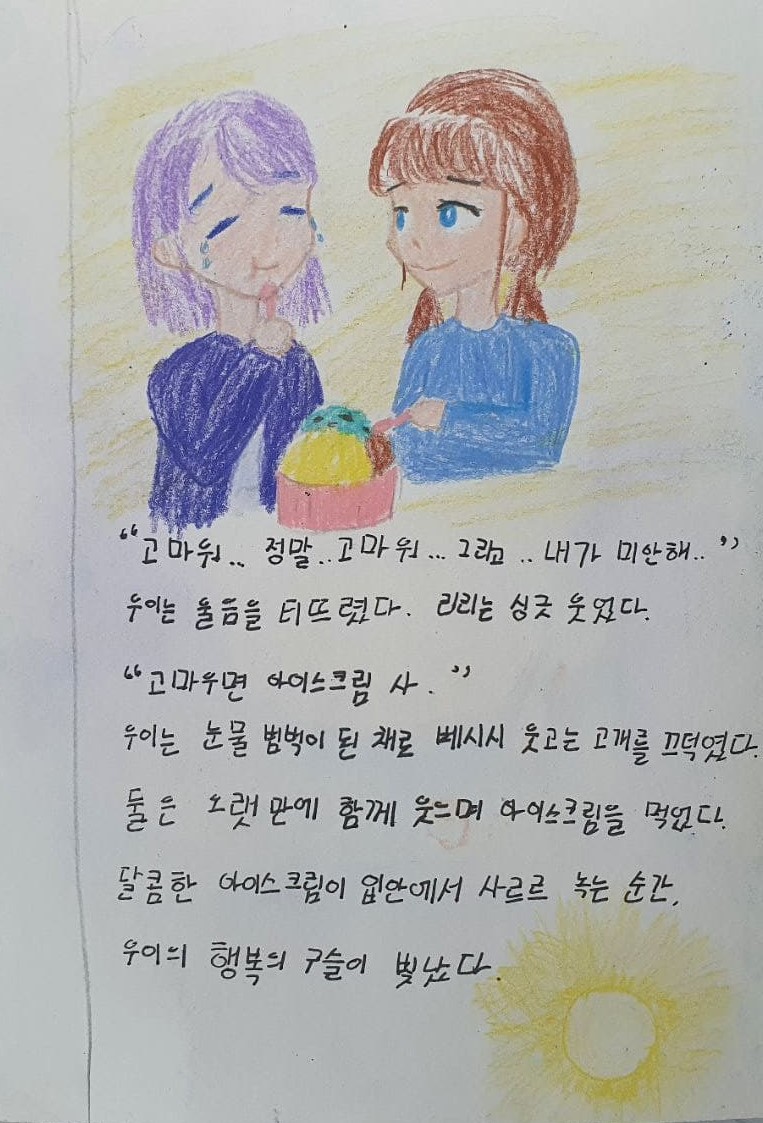 “고마워.. 정말..고마워... 그리고 .. 내가 미안해..”
우이는 울음을 터뜨렸다. 리리는 싱긋 웃었다.
“고마우면 아이스크림 사.”
우이는 눈물 범벅이 된 채로 베시시 웃고는 고개를 끄덕였다.
둘은 오랫만에 함께 웃으며 아이스크림을 먹었다.
달콤한 아이스크림이 입안에서 사르르 녹는 순간,
우이의 행복의 구슬이 빛났다.